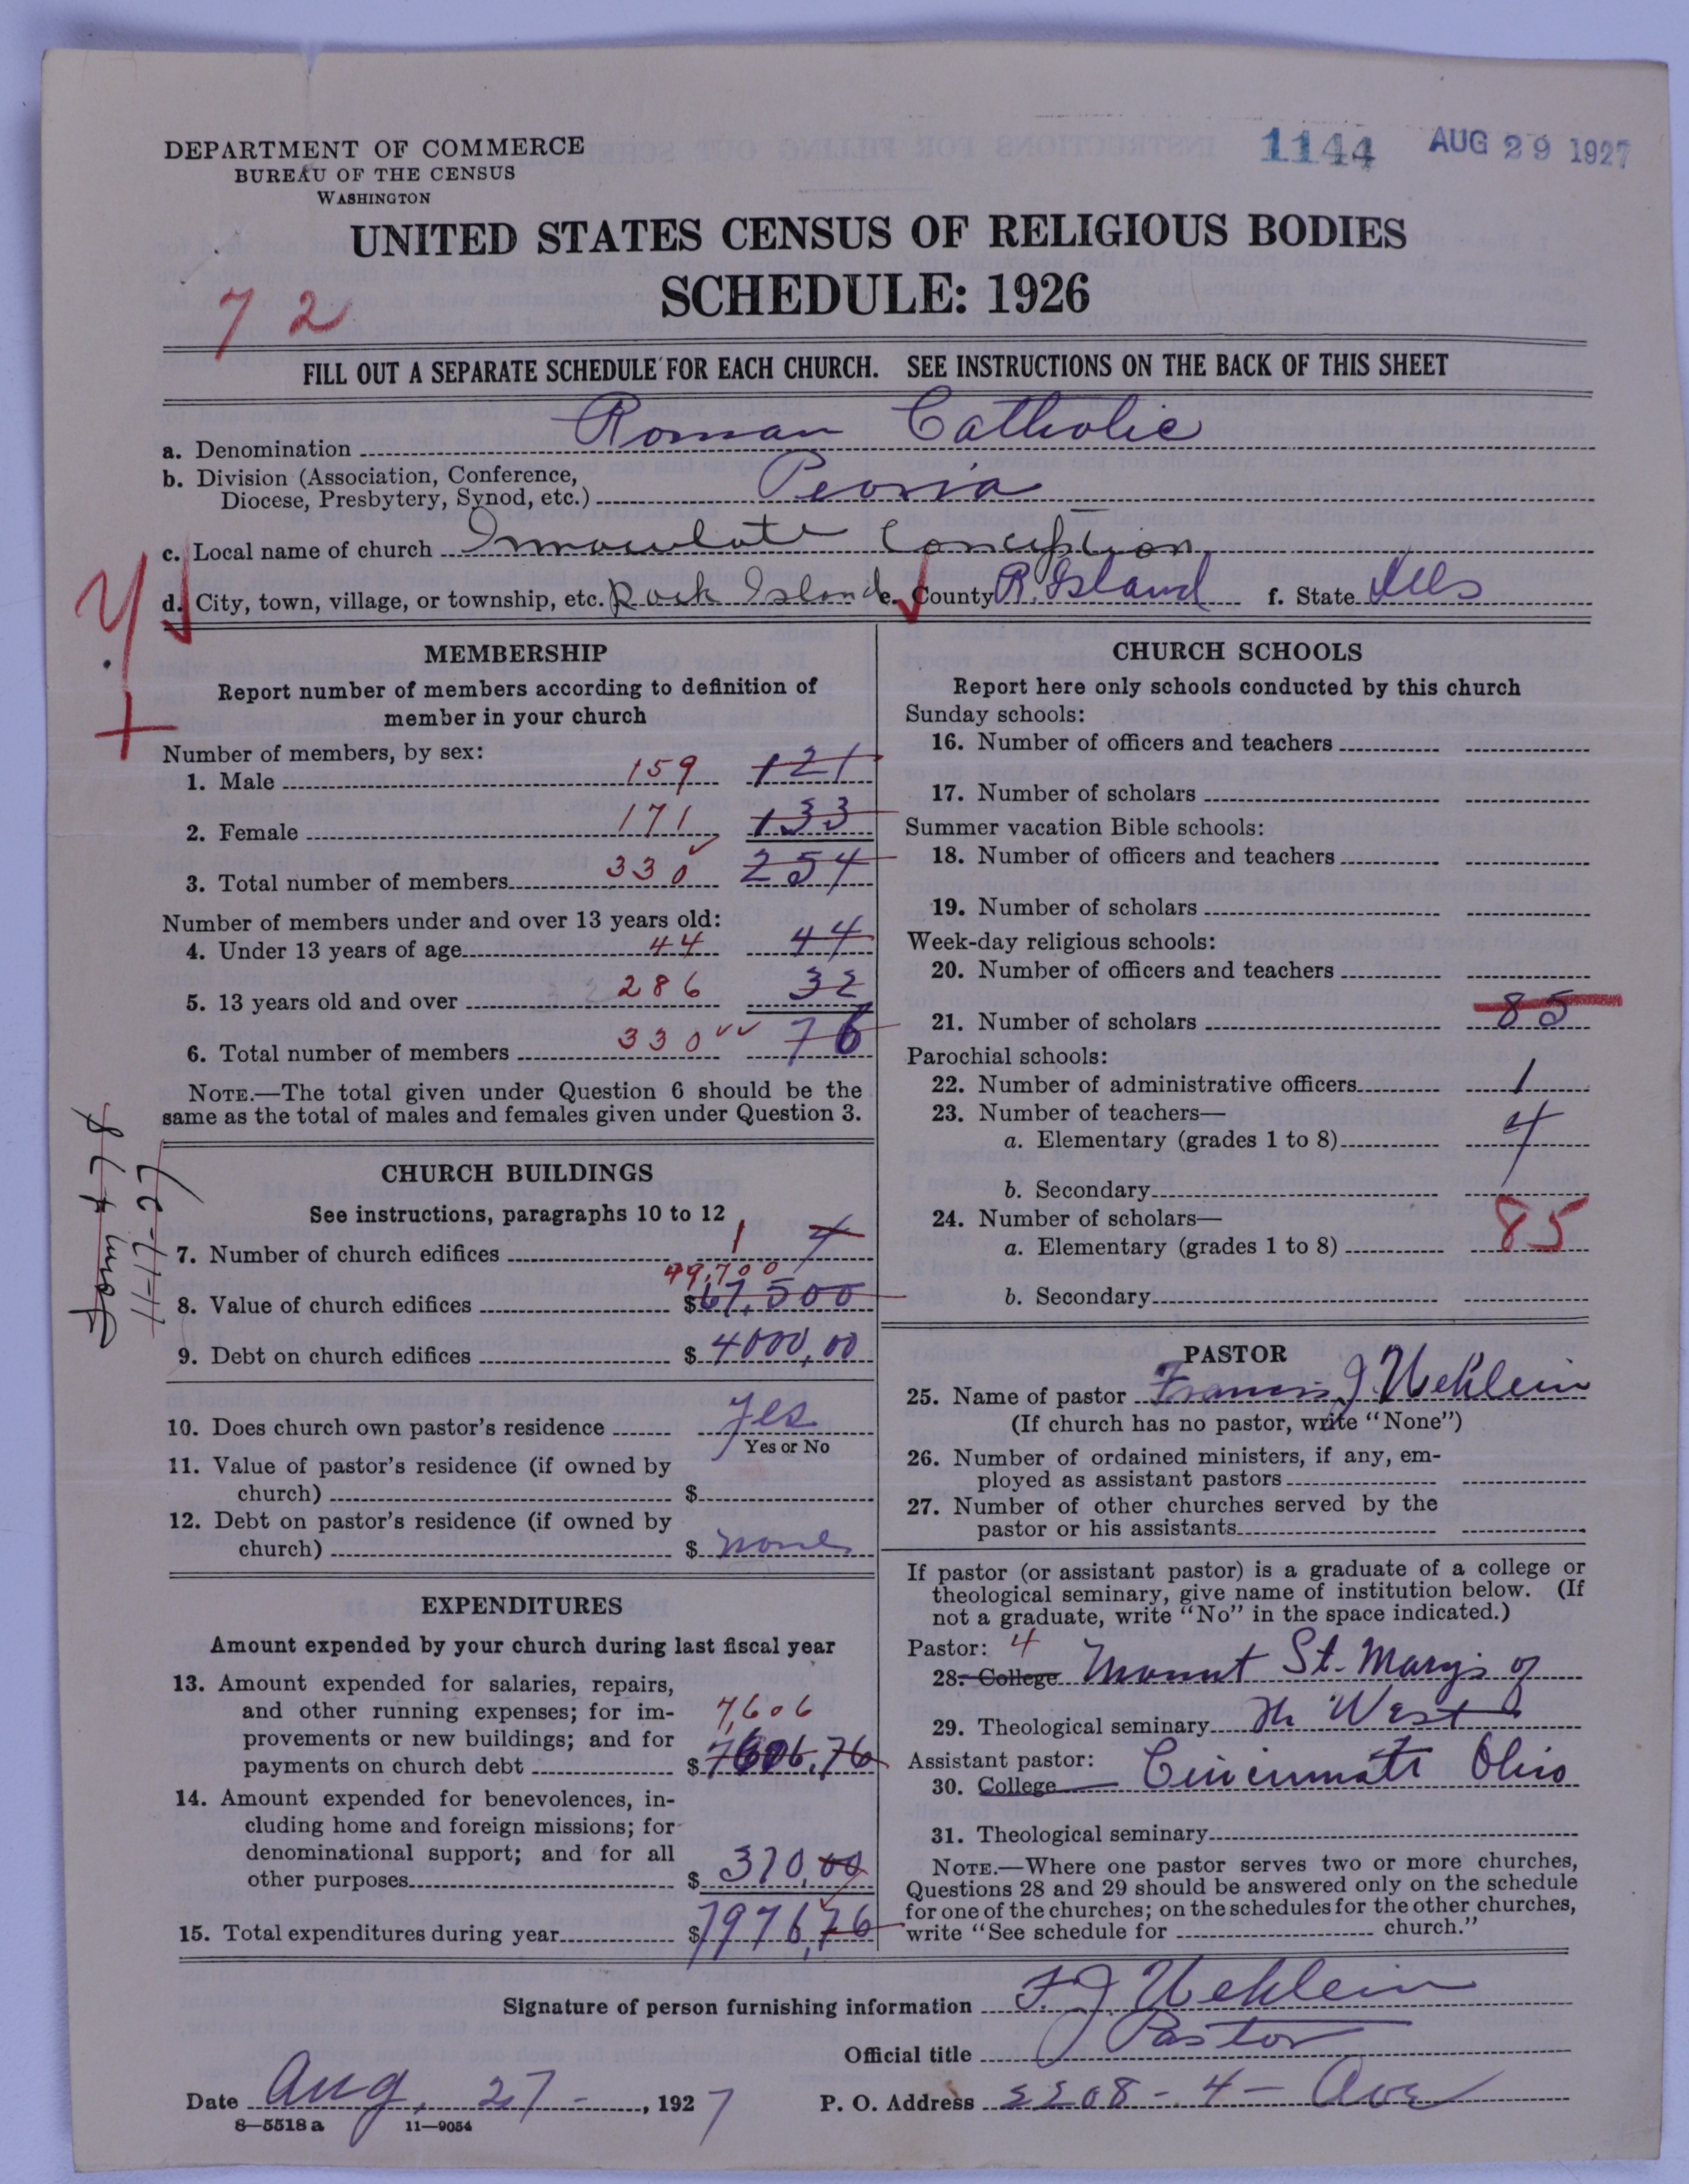 DEPARTMENT OF COMMERCE
BUREAU OF THE CENSUS
WASHINGTON
1144 AUG 29 1927
UNITED STATES CENSUS OF RELIGIOUS BODIES
SCHEDULE: 1926
72
FILL OUT A SEPARATE SCHEDULE FOR EACH CHURCH. SEE INSTRUCTIONS ON THE BACK OF THIS SHEET
a. Denomination Roman Catholic
b. Division (Association, Conference,
Diocese, Presbytery, Synod, etc.) Peoria
c. Local name of church Immaculate Conception
d. City, town, village, or township, etc. Rock Island e. County R. Island f. State Ills
MEMBERSHIP
Report number of members according to definition of
member in your church
Number of members, by sex:
1. Male 159 121
2. Female 171 133
3. Total number of members 330 254
Number of members under and over 13 years old:
4. Under 13 years of age 44 44
5. 13 years old and over 286 32
6. Total number of members 330 76
NOTE.—The total given under Question 6 should be the
same as the total of males and females given under Question 3.
Form 47 &
11-17-27
CHURCH BUILDINGS
See instructions, paragraphs 10 to 12
7. Number of church edifices 1 4
49,700
8. Value of church edifices $67,500
9. Debt on church edifices $4000,00
10. Does church own pastor's residence Yes
Yes or No
11. Value of pastor's residence (if owned by
church) $
12. Debt on pastor's residence (if owned by
church) $ none
EXPENDITURES
Amount expended by your church during last fiscal year
13. Amount expended for salaries, repairs,
and other running expenses; for im- 7,606
provements or new buildings; and for
payments on church debt $7606.76
14. Amount expended for benevolences, in-
cluding home and foreign missions; for
denominational support; and for all
other purposes $370,00
15. Total expenditures during year $7976,76
CHURCH SCHOOLS
Report here only schools conducted by this church
Sunday schools:
16. Number of officers and teachers
17. Number of scholars
Summer vacation Bible schools:
18. Number of officers and teachers
19. Number of scholars
Week-day religious schools:
20. Number of officers and teachers
21. Number of scholars 85
Parochial schools:
22. Number of administrative officers 1
23. Number of teachers—
a. Elementary (grades 1 to 8) 4
b. Secondary
24. Number of scholars—
a. Elementary (grades 1 to 8) 85
b. Secondary
PASTOR
25. Name of pastor Francis J Uehlein
(If church has no pastor, write "None")
26. Number of ordained ministers, if any, em-
ployed as assistant pastors
27. Number of other churches served by the
pastor or his assistants
If pastor (or assistant pastor) is a graduate of a college or
theological seminary, give name of institution below. (If
not a graduate, write "No" in the space indicated.)
Pastor: 4
28. College Mount St. Marys of
29. Theological seminary the West
Assistant pastor:
30. College Cincinnati Ohio
31. Theological seminary
NOTE.—Where one pastor serves two or more churches,
Questions 28 and 29 should be answered only on the schedule
for one of the churches; on the schedules for the other churches,
write "See schedule for church."
Signature of person furnishing information F. J Uehlein
Official title Pastor
Date Aug, 27 - , 1927 P. O. Address 2208 - 4 - Ave
8—5518 a 11—9054